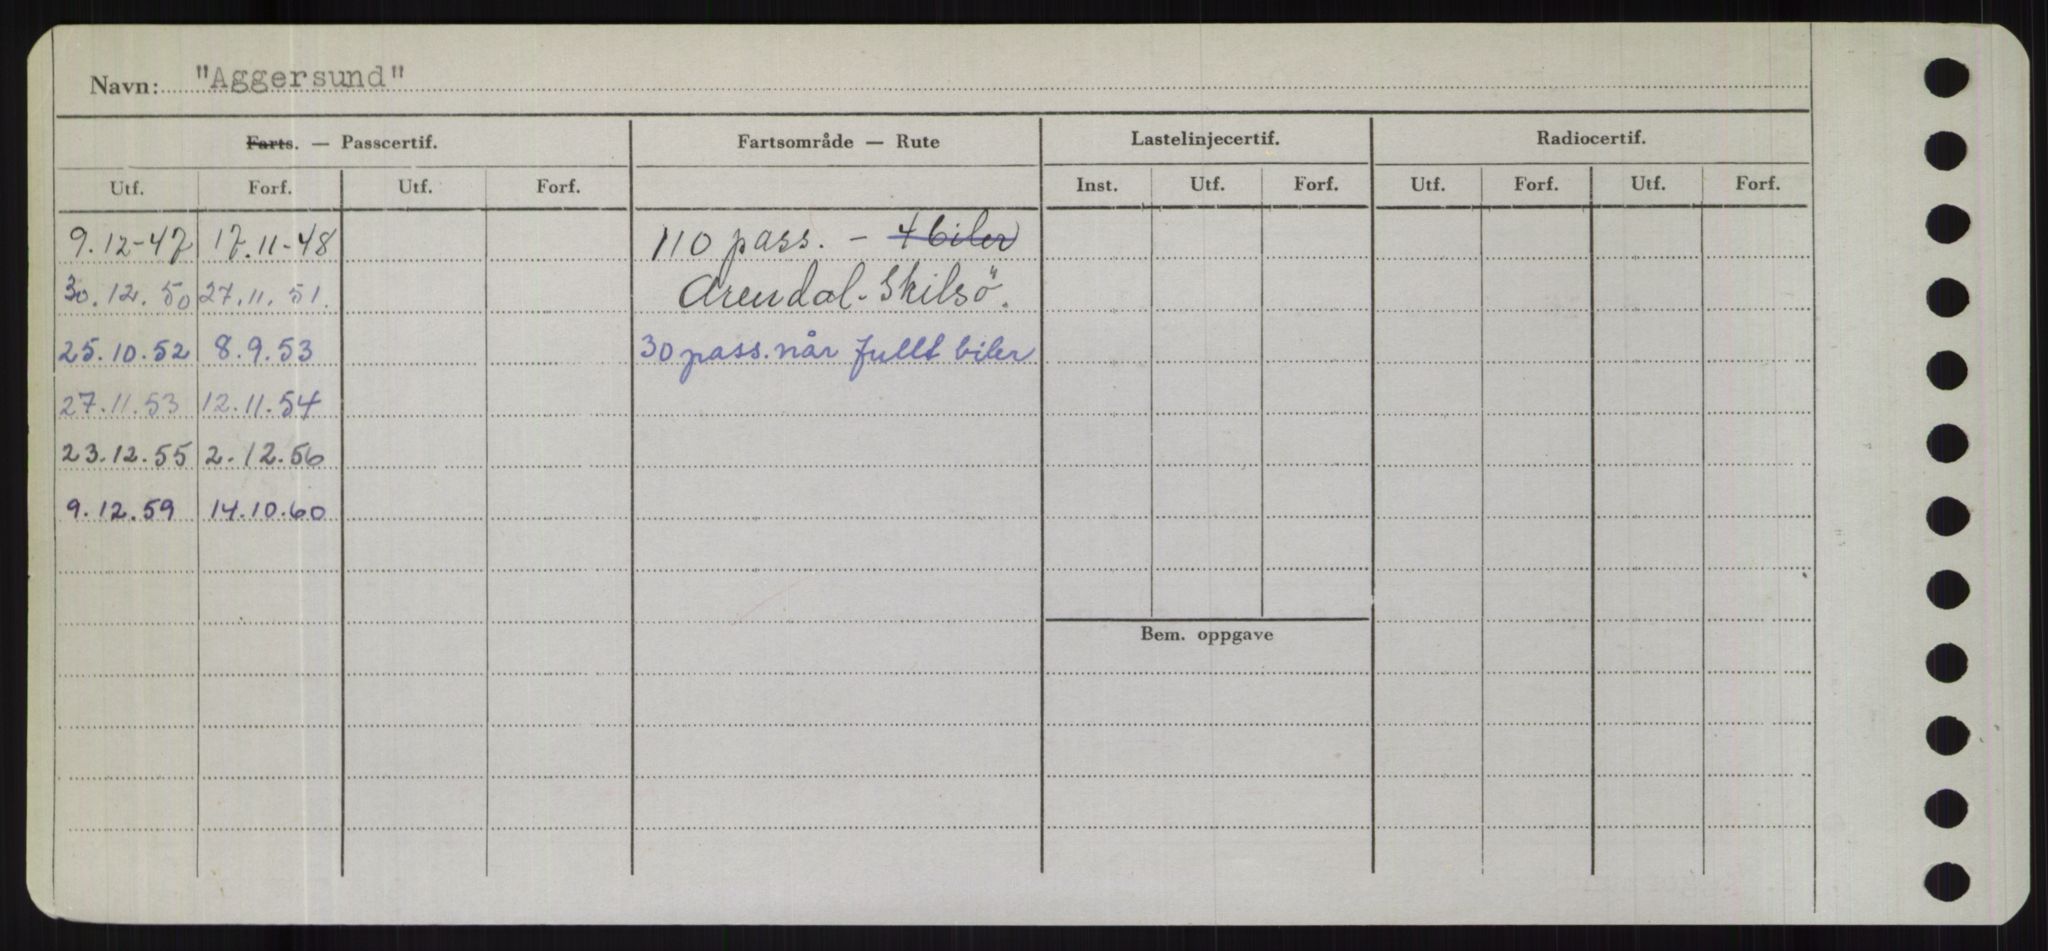 Navn: "Aggersund"
Farts. — Passcertif. Fartsområde — Rute Lastelinjecertif. Radiocertif.
Utf. Forf. Utf. Forf. Inst. Utf. Forf. Utf. Forf. Utf. Forf.
9.12-47 17.11-48 110 pass. - 4 biler
30.12.50 27.11.51. Arendal-Skilsö.
25.10.52 8.9.53 30 pass. når fullt biler
27.11.53 12.11.54
23.12.55 2.12.56
9.12.59 14.10.60
Bem. oppgave